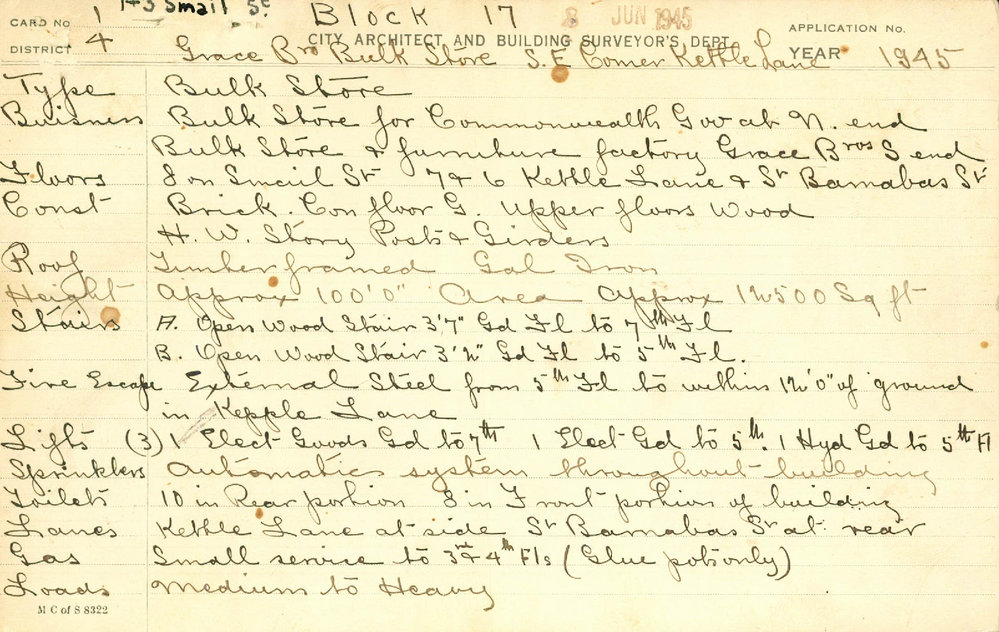 CARD NO. 1 1-3 Smail St Block 17 8 JUN 1945 APPLICATION NO.
DISTRICT 4 CITY ARCHITECT AND BUILDING SURVEYOR'S DEPT. YEAR
Grace Bros Bulk Store S.E Corner Kettle Lane 1945
Type Bulk Store
Buisness Bulk Store for Commonwealth Gov at N. end
Bulk Store & furniture factory Grace Bros S end
Floors 8 on Smail St 7 & 6 Kettle Lane & St Barnabas St
Const Brick. Con floor G. Upper floors Wood
H. W. Story Posts & Girders
Roof Timber framed Gal Iron
Height Approx 100'0" Area Approx 12500 Sq ft
Stairs A. Open Wood Stair 3'7" Gd Fl to 7th Fl
B. Open Wood Stair 3'2" Gd Fl to 5th Fl.
Fire Escape External Steel from 5th Fl to within 12'0" of ground
in Kepple Lane
Lifts (3) 1 Elect Goods Gd to 7th 1 Elect Gd to 5th. 1 Hyd Gd to 5th Fl
Sprinklers Automatic system throughout building
Toilets 10 in Rear portion 8 in Front portion of building
Lanes Kettle Lane at side St Barnabas St at rear
Gas Small service to 3rd & 4th Fls (Glue pots only)
Loads Medium to Heavy
M C of S 8322